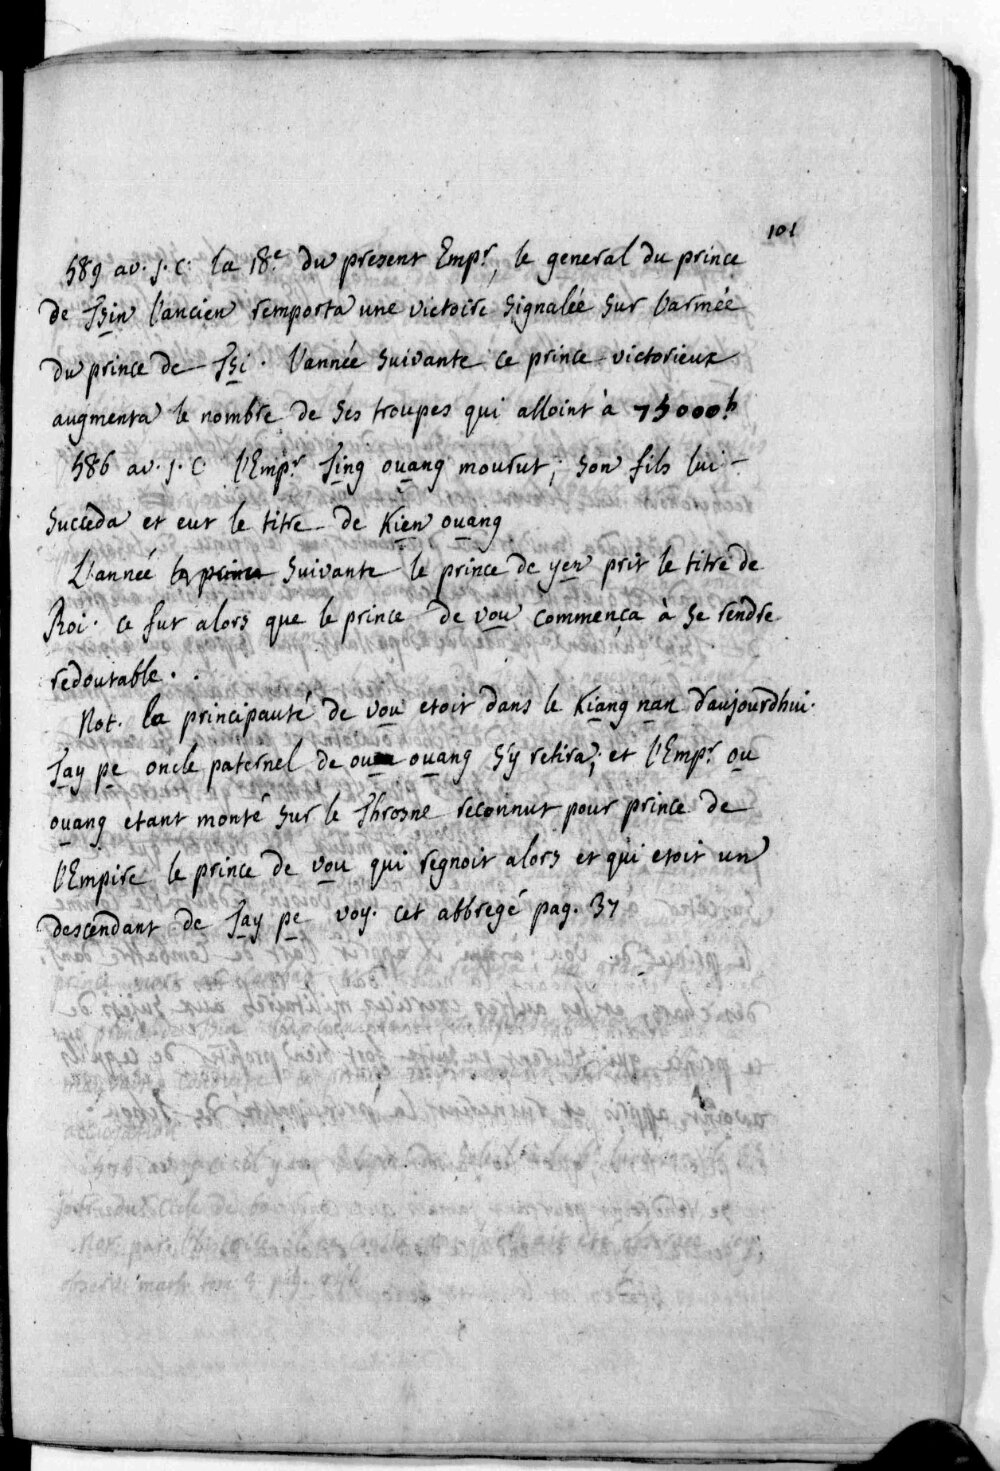 101
589 av. j. c. la 18.e du present Emp.r, le general du prince
de Tsin l'ancien remporta une victoire signalée sur l'armée
du prince de Tsi. l'année suivante ce prince victorieux
augmenta le nombre de ses troupes qui alloint à 75000 h
586 av. j. c. l'Emp.r Ting ouang mourut; son fils lui
succeda et eut le titre de Kien ouang
L'année suivante le prince de yen prit le titre de
Roi. ce fut alors que le prince de vou commença à se rendre
redoutable.
Not. la principaute de vou etoit dans le Kiang nan d'aujourdhui.
Tay pe oncle paternel de ouen ouang s'y retira; et l'Emp.r ou
ouang etant monté sur le Throsne reconnut pour prince de
l'Empire le prince de vou qui regnoit alors et qui etoit un
descendant de Tay pe voy. cet abbregé pag. 37